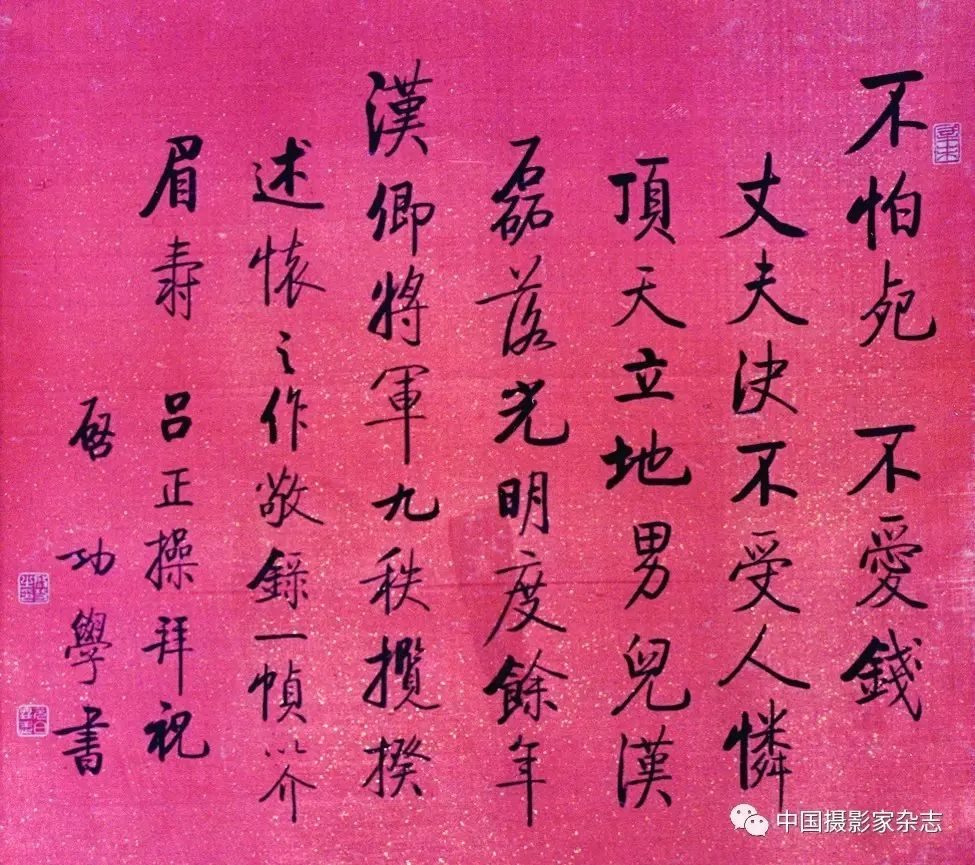 不怕死 不愛錢
丈夫決不受人憐
頂天立地男兒漢
磊落光明度餘年
漢卿將軍九秩攬揆
述懷之作敬錄一幀以介
眉壽 呂正操拜祝
啓功學書
中国摄影家杂志